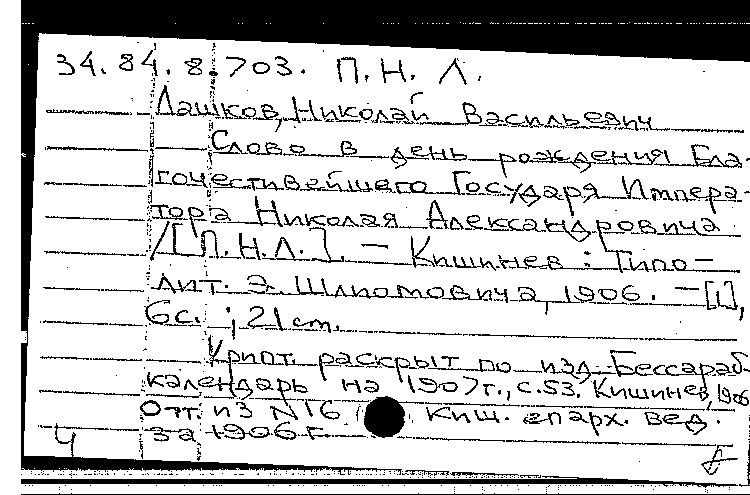 34.84.8.703. П.Н.Л.
Лашков, Николай Васильевич
Слово в день рождения Бла-
гочестивейшего Государя Импера-
тора Николая Александровича
/[П.Н.Л.]. — Кишинев : Типо-
лит. Э. Шлиомовича, 1906. — [1],
6с. ; 21 см.
Крипт. раскрыт по изд. Бессараб.
календарь на 1907г., с.53. Кишинев, 1906
Отт. из N16 Киш. епарх. вед.
за 1906 г.
4